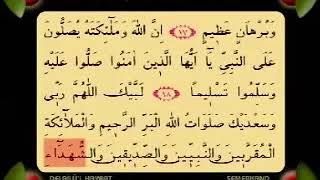 وَبُرْهَانٍ عَظِيمٍ ﴿١٧﴾ اِنَّ اللهَ وَمَلٰٓئِكَتَهُ يُصَلُّونَ
عَلَى النَّبِيِّ يَآ اَيُّهَا الَّذِينَ اٰمَنُوا صَلُّوا عَلَيْهِ
وَسَلِّمُوا تَسْلِيمًا ﴿١٨﴾ لَبَّيْكَ اللّٰهُمَّ رَبِّى
وَسَعْدَيْكَ صَلَوَاتُ اللهِ الْبَرِّ الرَّحِيمِ وَالْمَلٰٓئِكَةِ
الْمُقَرَّبِينَ وَالنَّبِيِّينَ وَالصِّدِّيقِينَ وَالشُّهَدَآءِ
DELAİLÜ'L HAYRAT SEMERKAND